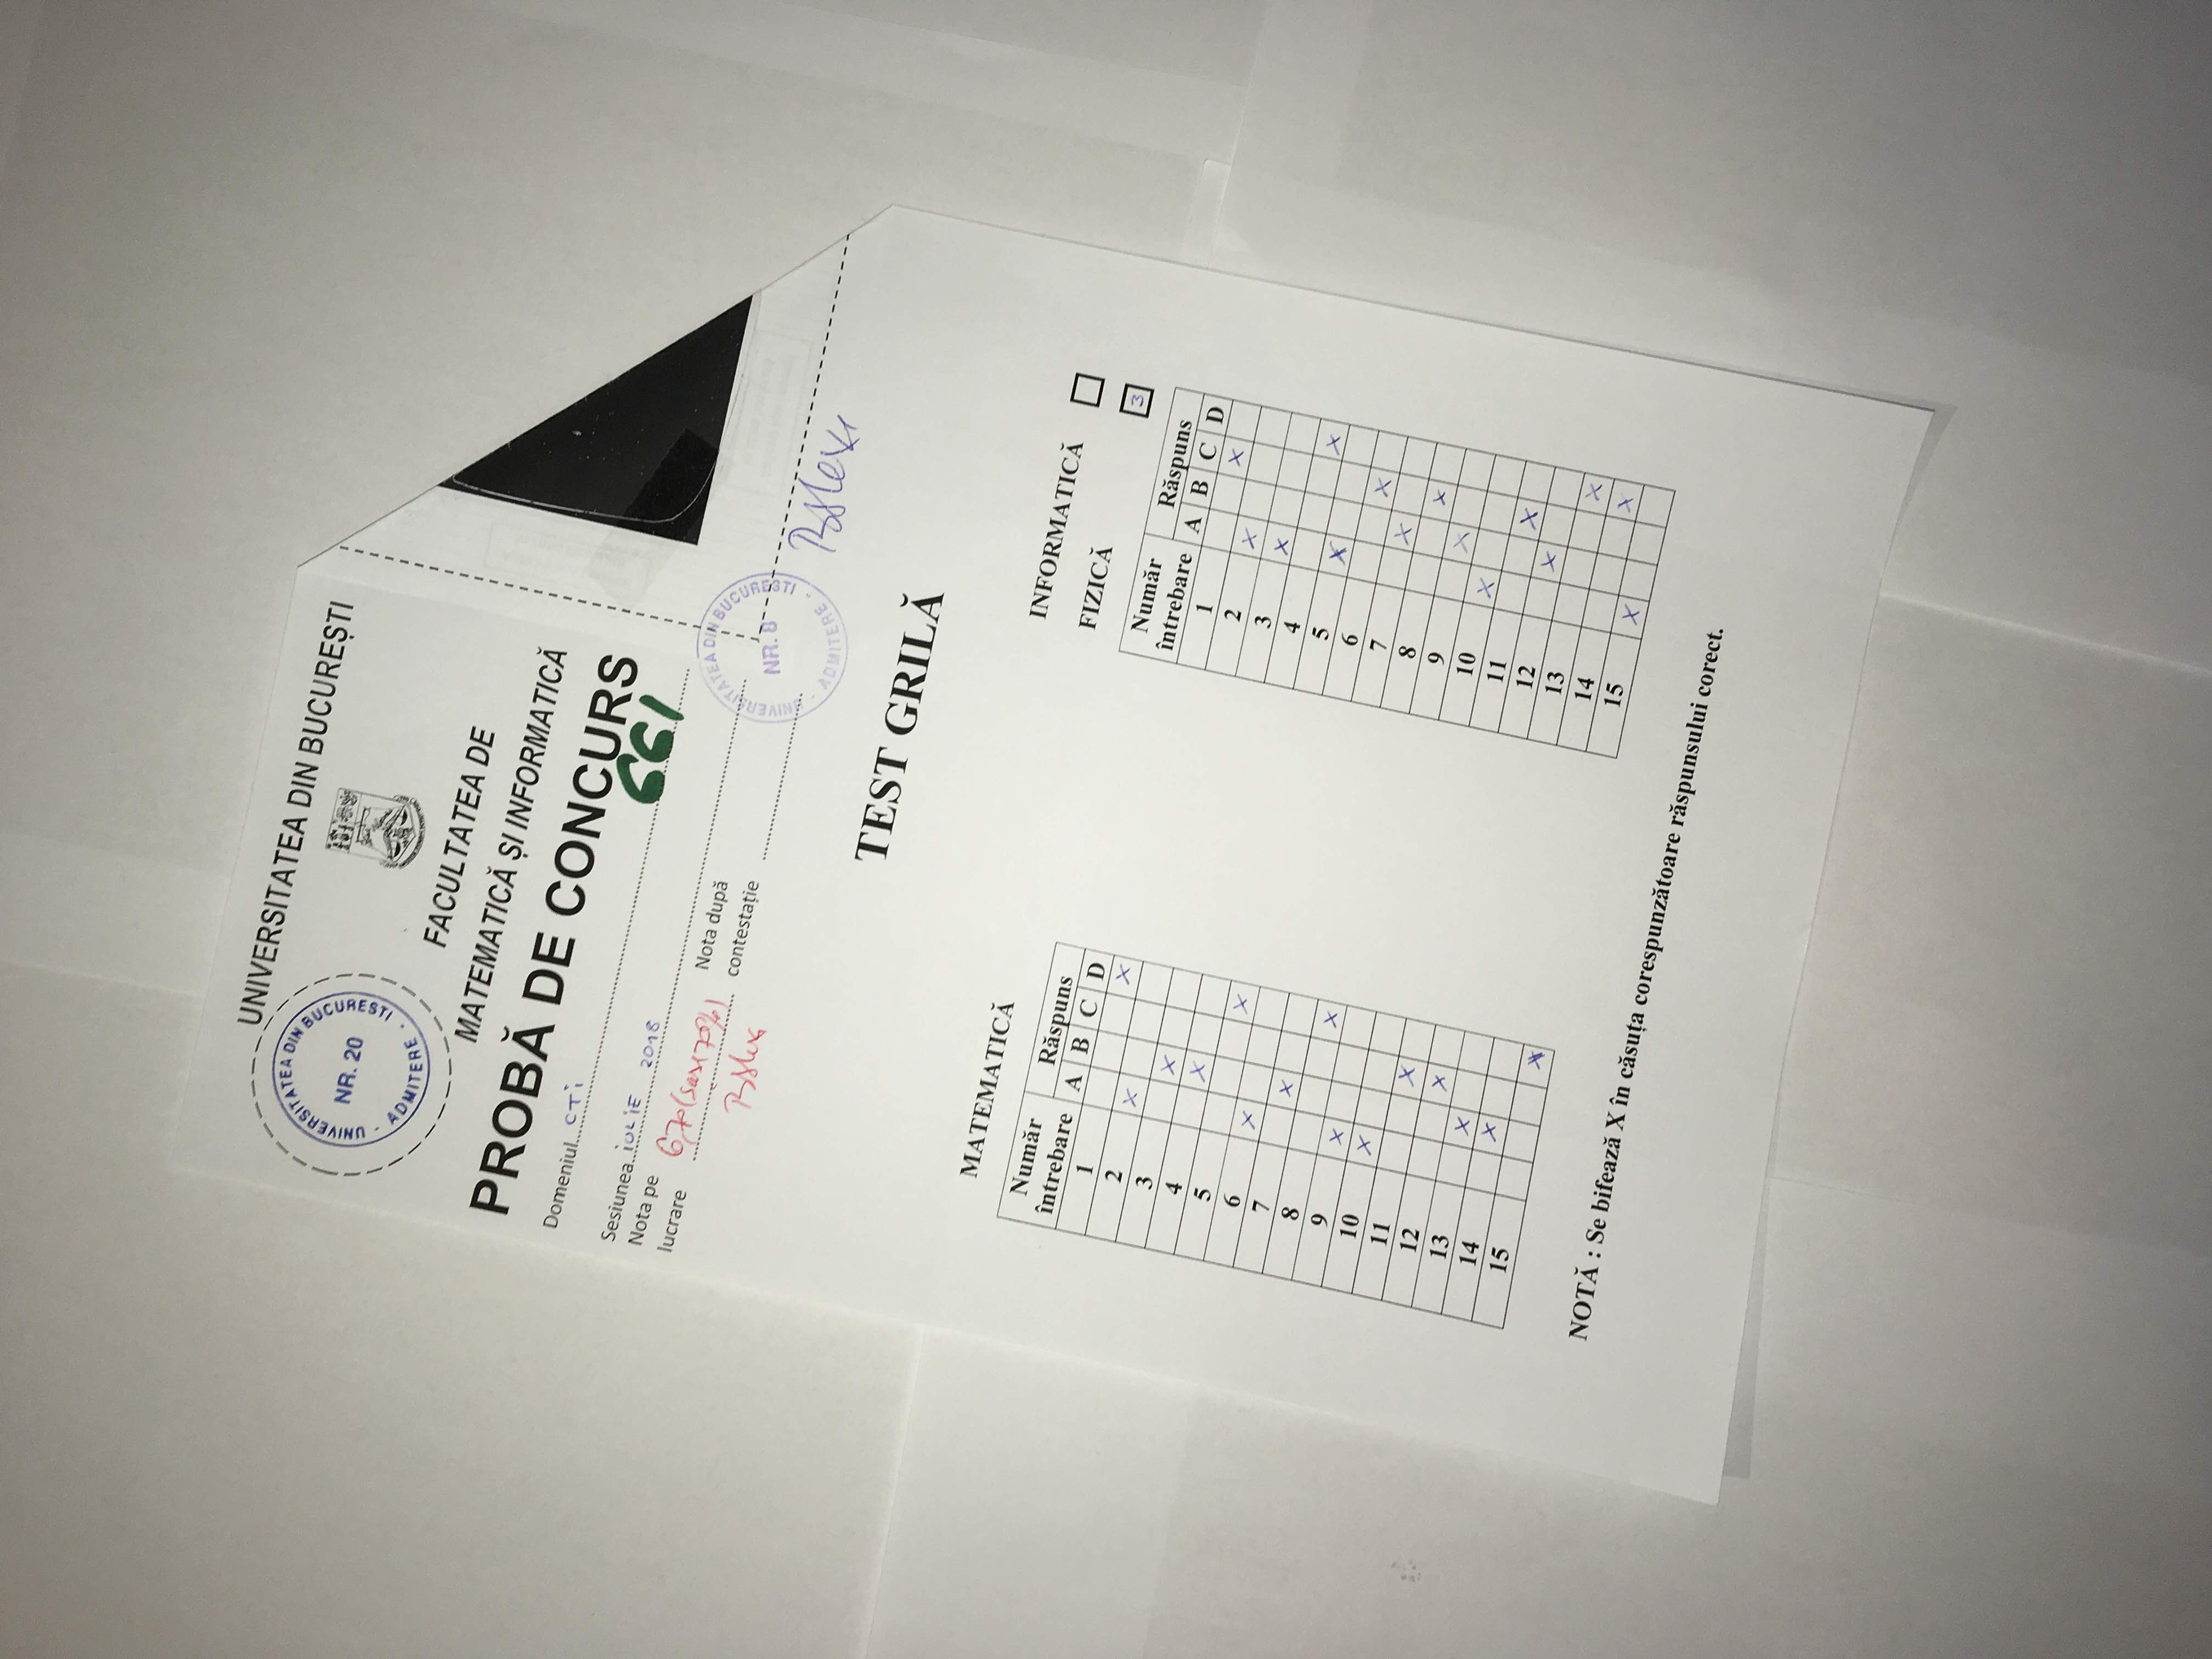 UNIVERSITATEA DIN BUCUREȘTI
UNIVERSITATEA DIN BUCURESTI
NR. 20
- ADMITERE -
FACULTATEA DE
MATEMATICĂ ȘI INFORMATICĂ
PROBĂ DE CONCURS
Domeniul CTi
661
Sesiunea iULiE 2018
Nota pe lucrare 6,70 (șase 70%)
Nota după contestație
UNIVERSITATEA DIN BUCURESTI
NR. 8
- ADMITERE -
TEST GRILĂ
MATEMATICĂ
Număr întrebare Răspuns
A B C D
1 X
2 X
3 X
4 X
5 X
6 X
7 X
8 X
9 X
10 X
11 X
12 X
13 X
14 X
15 X
INFORMATICĂ
FIZICĂ 3
Număr întrebare Răspuns
A B C D
1 X
2 X
3 X
4 X
5 X
6 X
7 X
8 X
9 X
10 X
11 X
12 X
13 X
14 X
15 X
NOTĂ : Se bifează X în căsuța corespunzătoare răspunsului corect.